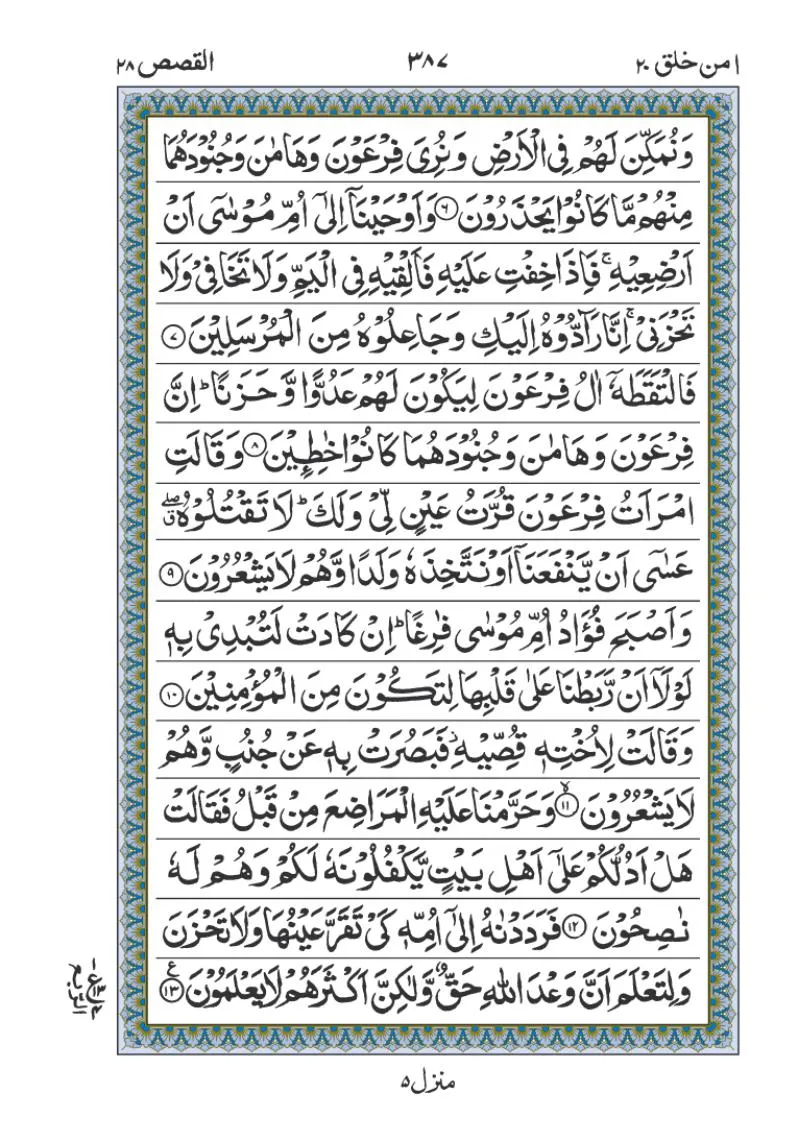 امن خلق ۲۰ ۳۸۷ القصص ۲۸
وَنُمَكِّنَ لَهُمْ فِی الْاَرْضِ وَ نُرِیَ فِرْعَوْنَ وَهَامٰنَ وَجُنُوْدَهُمَا
مِنْهُمْ مَّا كَانُوْا یَحْذَرُوْنَ ۶ وَاَوْحَیْنَاۤ اِلٰۤی اُمِّ مُوْسٰۤی اَنْ
اَرْضِعِیْهِ ۚ فَاِذَا خِفْتِ عَلَیْهِ فَاَلْقِیْهِ فِی الْیَمِّ وَلَا تَخَافِیْ وَلَا
تَحْزَنِیْ ۚ اِنَّا رَآدُّوْهُ اِلَیْكِ وَجَاعِلُوْهُ مِنَ الْمُرْسَلِیْنَ ۷
فَالْتَقَطَهٗۤ اٰلُ فِرْعَوْنَ لِیَكُوْنَ لَهُمْ عَدُوًّا وَّ حَزَنًا ؕ اِنَّ
فِرْعَوْنَ وَ هَامٰنَ وَ جُنُوْدَهُمَا كَانُوْا خٰطِـِٕیْنَ ۸ وَ قَالَتِ
امْرَاَتُ فِرْعَوْنَ قُرَّتُ عَیْنٍ لِّیْ وَ لَكَ ؕ لَا تَقْتُلُوْهُ ۖق
عَسٰۤی اَنْ یَّنْفَعَنَاۤ اَوْ نَتَّخِذَهٗ وَلَدًا وَّهُمْ لَا یَشْعُرُوْنَ ۹
وَ اَصْبَحَ فُؤَادُ اُمِّ مُوْسٰی فٰرِغًا ؕ اِنْ كَادَتْ لَتُبْدِیْ بِهٖ
لَوْلَاۤ اَنْ رَّبَطْنَا عَلٰی قَلْبِهَا لِتَكُوْنَ مِنَ الْمُؤْمِنِیْنَ ۱۰
وَ قَالَتْ لِاُخْتِهٖ قُصِّیْهِ ؗ فَبَصُرَتْ بِهٖ عَنْ جُنُبٍ وَّهُمْ
لَا یَشْعُرُوْنَ ۙ ۱۱ وَحَرَّمْنَا عَلَیْهِ الْمَرَاضِعَ مِنْ قَبْلُ فَقَالَتْ
هَلْ اَدُلُّكُمْ عَلٰۤی اَهْلِ بَیْتٍ یَّكْفُلُوْنَهٗ لَكُمْ وَ هُمْ لَهٗ
نٰصِحُوْنَ ۱۲ فَرَدَدْنٰهُ اِلٰۤی اُمِّهٖ كَیْ تَقَرَّ عَیْنُهَا وَلَا تَحْزَنَ
وَلِتَعْلَمَ اَنَّ وَعْدَ اللّٰهِ حَقٌّ وَّلٰكِنَّ اَكْثَرَهُمْ لَا یَعْلَمُوْنَ ۱۳ ع
منزل ۵